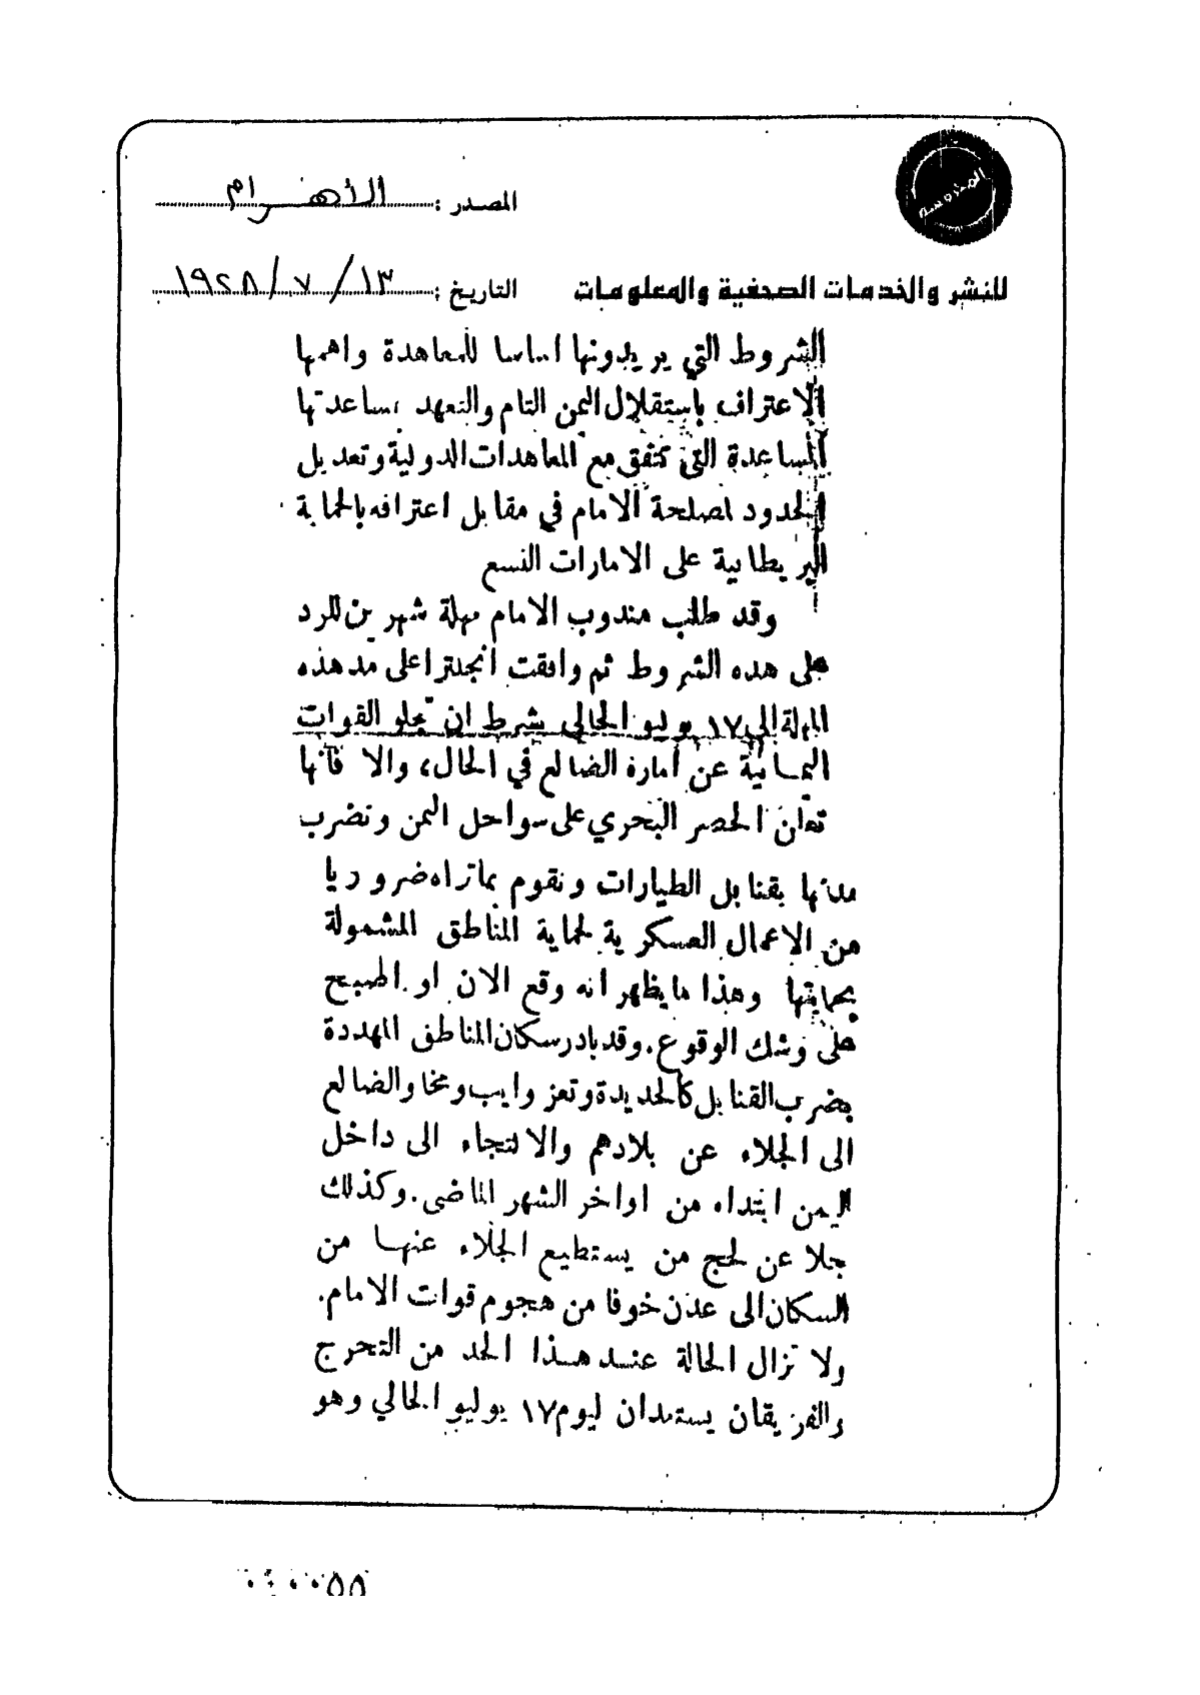 المحروسة
المصدر : الأهرام
للنشر والخدمات الصحفية والمعلومات
التاريخ : ١٣ / ٧ / ١٩٢٨
الشروط التي يريدونها اساسا للمعاهدة واهمها
الاعتراف باستقلال اليمن التام والتعهد بمساعدتها
المساعدة التي تتفق مع المعاهدات الدولية وتعديل
الحدود لمصلحة الامام في مقابل اعترافه بالحماية
البريطانية على الامارات التسع
وقد طلب مندوب الامام مهلة شهرين للرد
على هذه الشروط ثم وافقت انجلترا على مد هذه
المهلة الى ١٧ يوليو الحالي بشرط ان تجلو القوات
اليمانية عن امارة الضالع في الحال، والا فانها
تعلن الحصر البحري على سواحل اليمن وتضرب
مدنها بقنابل الطيارات وتقوم بما تراه ضروريا
من الاعمال العسكرية لحماية المناطق المشمولة
بحمايتها وهذا ما يظهر انه وقع الان او اصبح
على وشك الوقوع. وقد بادر سكان المناطق المهددة
بضرب القنابل كالحديدة وتعز وايب ومخا والضالع
الى الجلاء عن بلادهم والالتجاء الى داخل
اليمن ابتداء من اواخر الشهر الماضى. وكذلك
جلا عن لحج من يستطيع الجلاء عنها من
السكان الى عدن خوفا من هجوم قوات الامام.
ولا تزال الحالة عند هذا الحد من التحرج
والفريقان يستعدان ليوم ١٧ يوليو الحالي وهو
٠٤٠٠٥٥